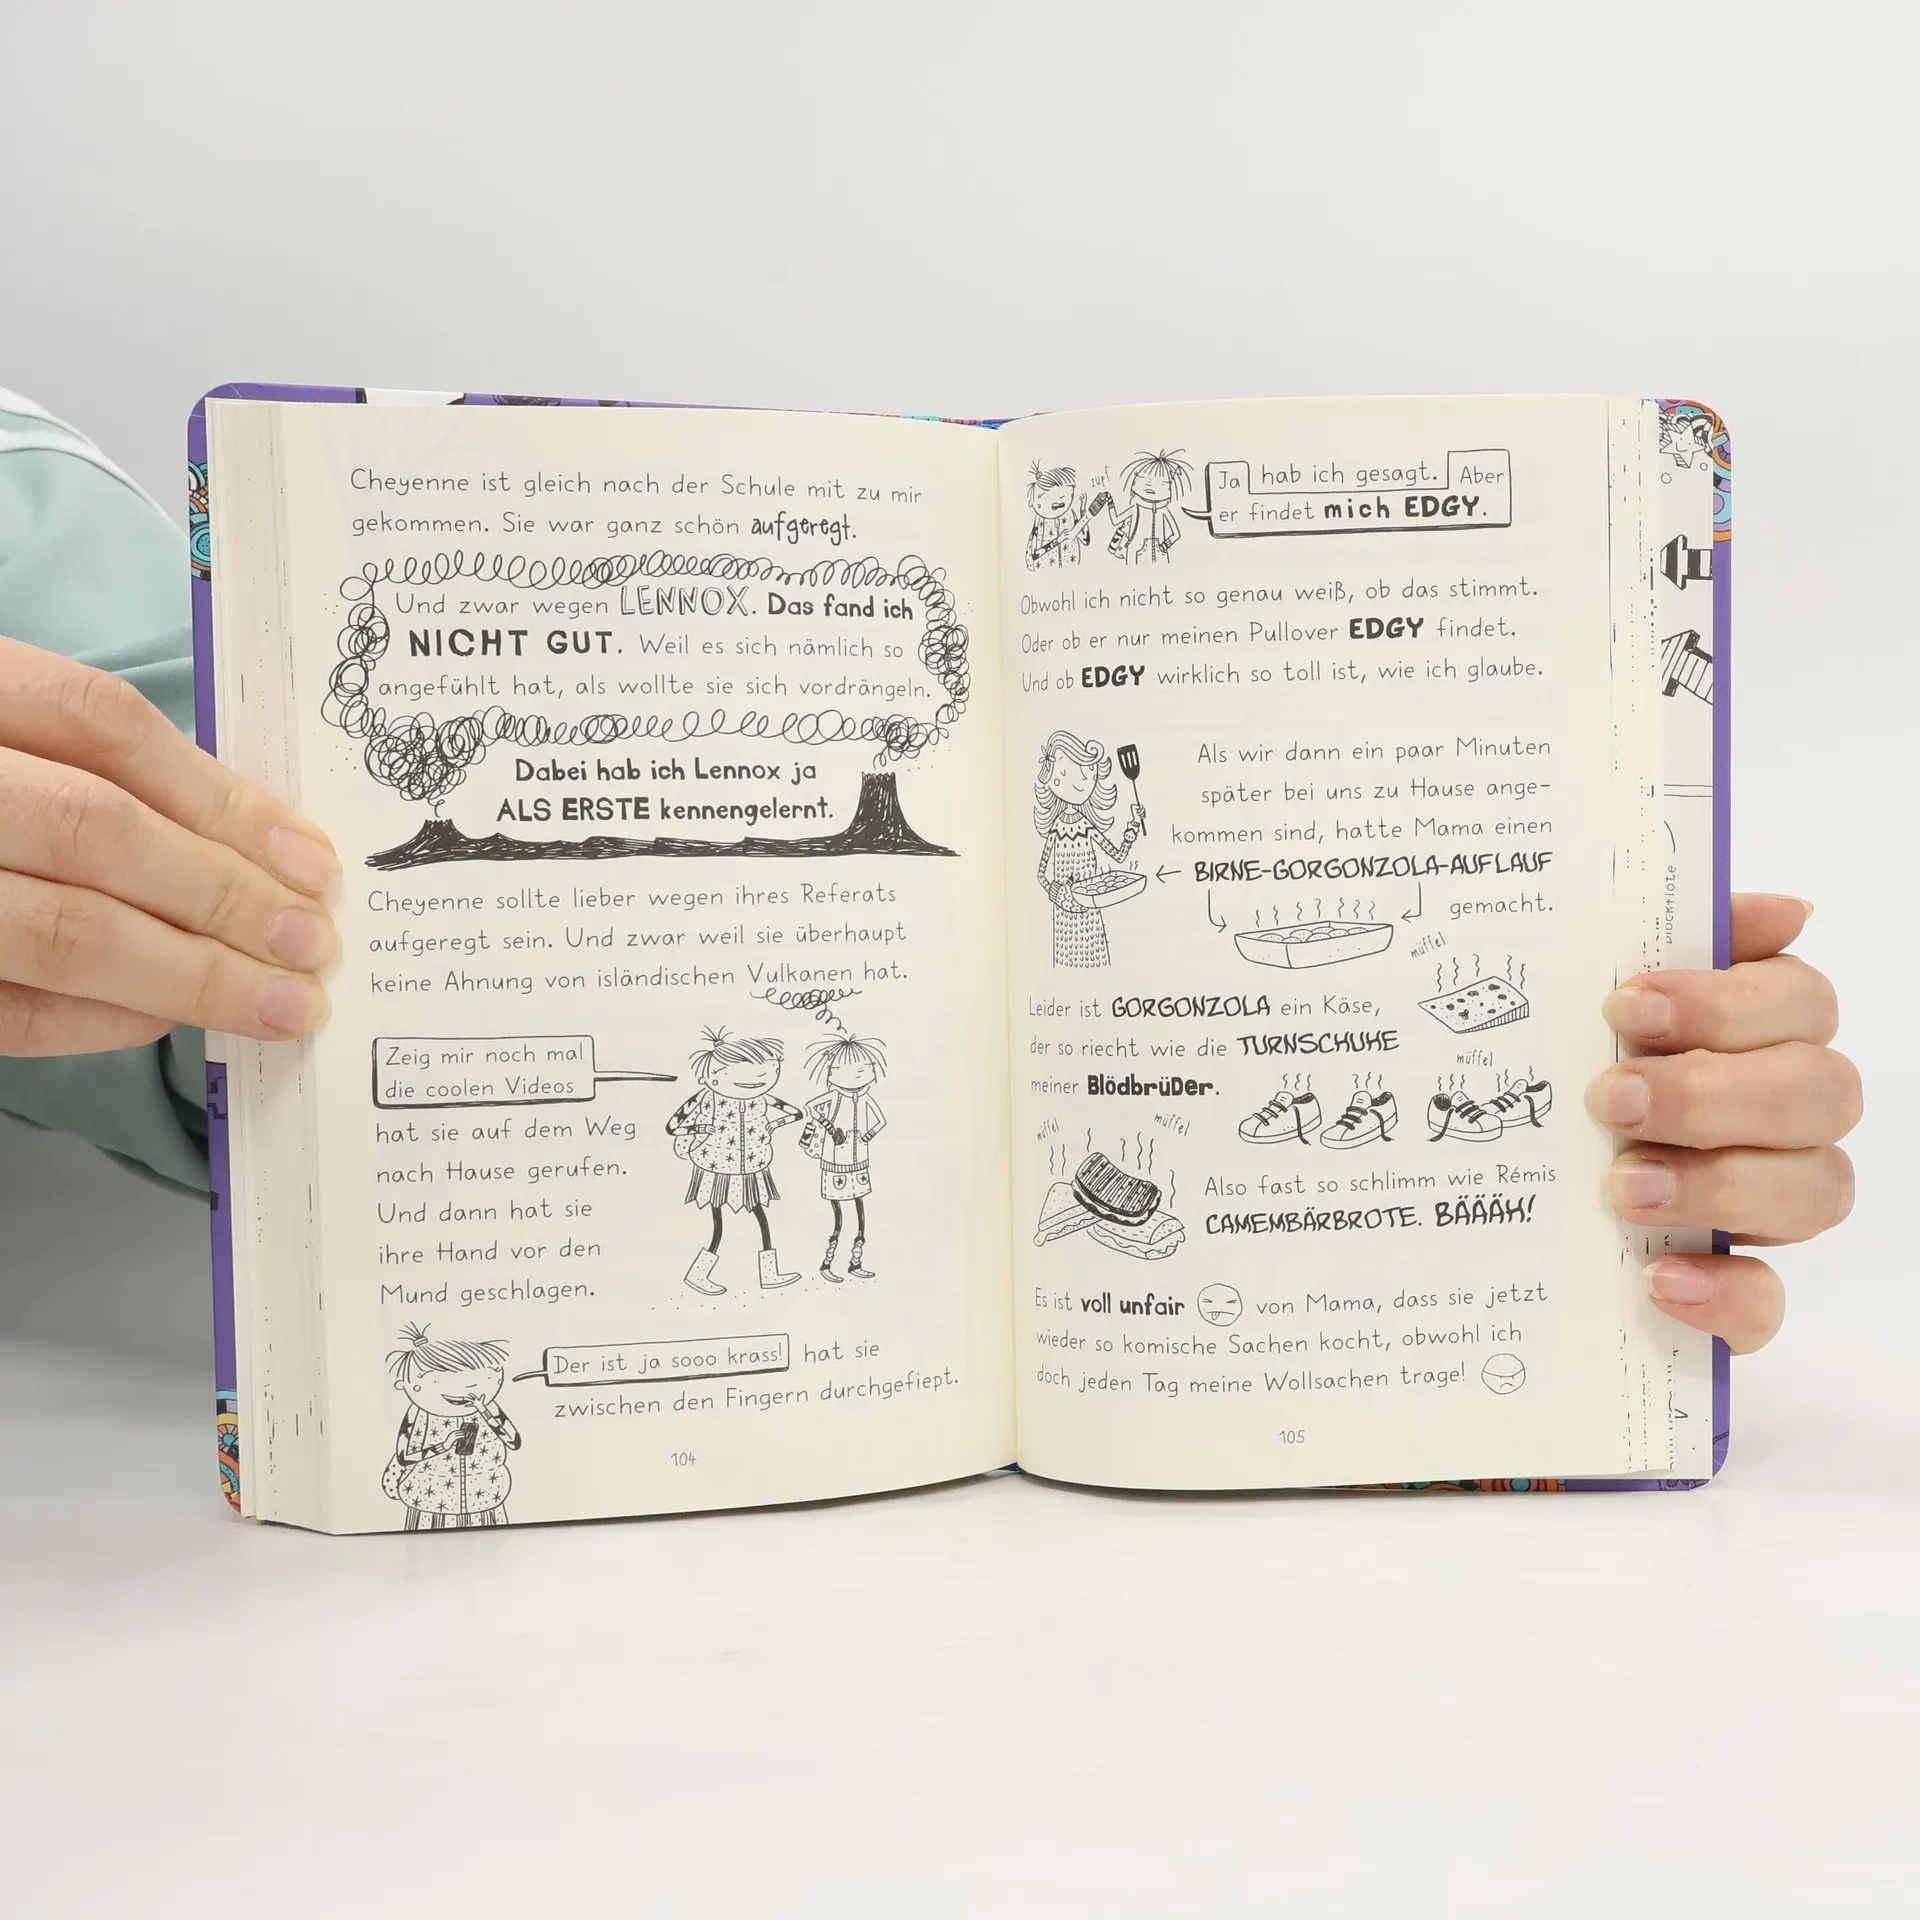 Cheyenne ist gleich nach der Schule mit zu mir
gekommen. Sie war ganz schön aufgeregt.
Und zwar wegen LENNOX. Das fand ich
NICHT GUT. Weil es sich nämlich so
angefühlt hat, als wollte sie sich vordrängeln.
Dabei hab ich Lennox ja
ALS ERSTE kennengelernt.
Cheyenne sollte lieber wegen ihres Referats
aufgeregt sein. Und zwar weil sie überhaupt
keine Ahnung von isländischen Vulkanen hat.
Zeig mir noch mal
die coolen Videos
hat sie auf dem Weg
nach Hause gerufen.
Und dann hat sie
ihre Hand vor den
Mund geschlagen.
Der ist ja sooo krass! hat sie
zwischen den Fingern durchgefiept.
104
zupf
Ja hab ich gesagt. Aber
er findet mich EDGY.
Obwohl ich nicht so genau weiß, ob das stimmt.
Oder ob er nur meinen Pullover EDGY findet.
Und ob EDGY wirklich so toll ist, wie ich glaube.
Als wir dann ein paar Minuten
später bei uns zu Hause ange-
kommen sind, hatte Mama einen
BIRNE-GORGONZOLA-AUFLAUF
gemacht.
müffel
Leider ist GORGONZOLA ein Käse,
der so riecht wie die TURNSCHUHE
müffel
meiner BlödbrüDer.
müffel
müffel
Also fast so schlimm wie Rémis
CAMEMBÄRBROTE. BÄÄÄH!
Es ist voll unfair von Mama, dass sie jetzt
wieder so komische Sachen kocht, obwohl ich
doch jeden Tag meine Wollsachen trage!
105
Blockflöte